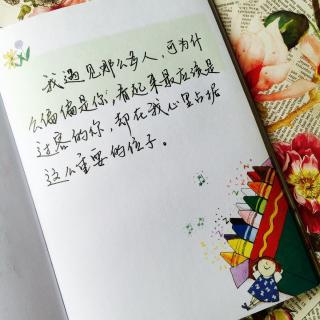 我遇见那么多人，可为什
么偏偏是你，看起来最应该是
过客的你，却在我心里占据
这么重要的位子。